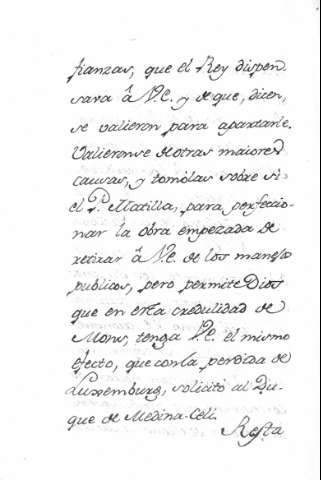 fianzas, que el Rey dispen-
sara â V.E. y de que, dicen,
se valieron para apartarle.
Valieronse de otras maiores
causas, y tomólas sobre si
el P. Matilla, para perfeccio-
nar la obra empezada de
retirar â V.E. de los manejos
publicos, pero permite Dios
que en esta credulidad de
Mons, tenga V.E. el mismo
efecto, que con la perdida de
Luxemburg, solicitò al Du-
que de Medina-Celi.
Resta